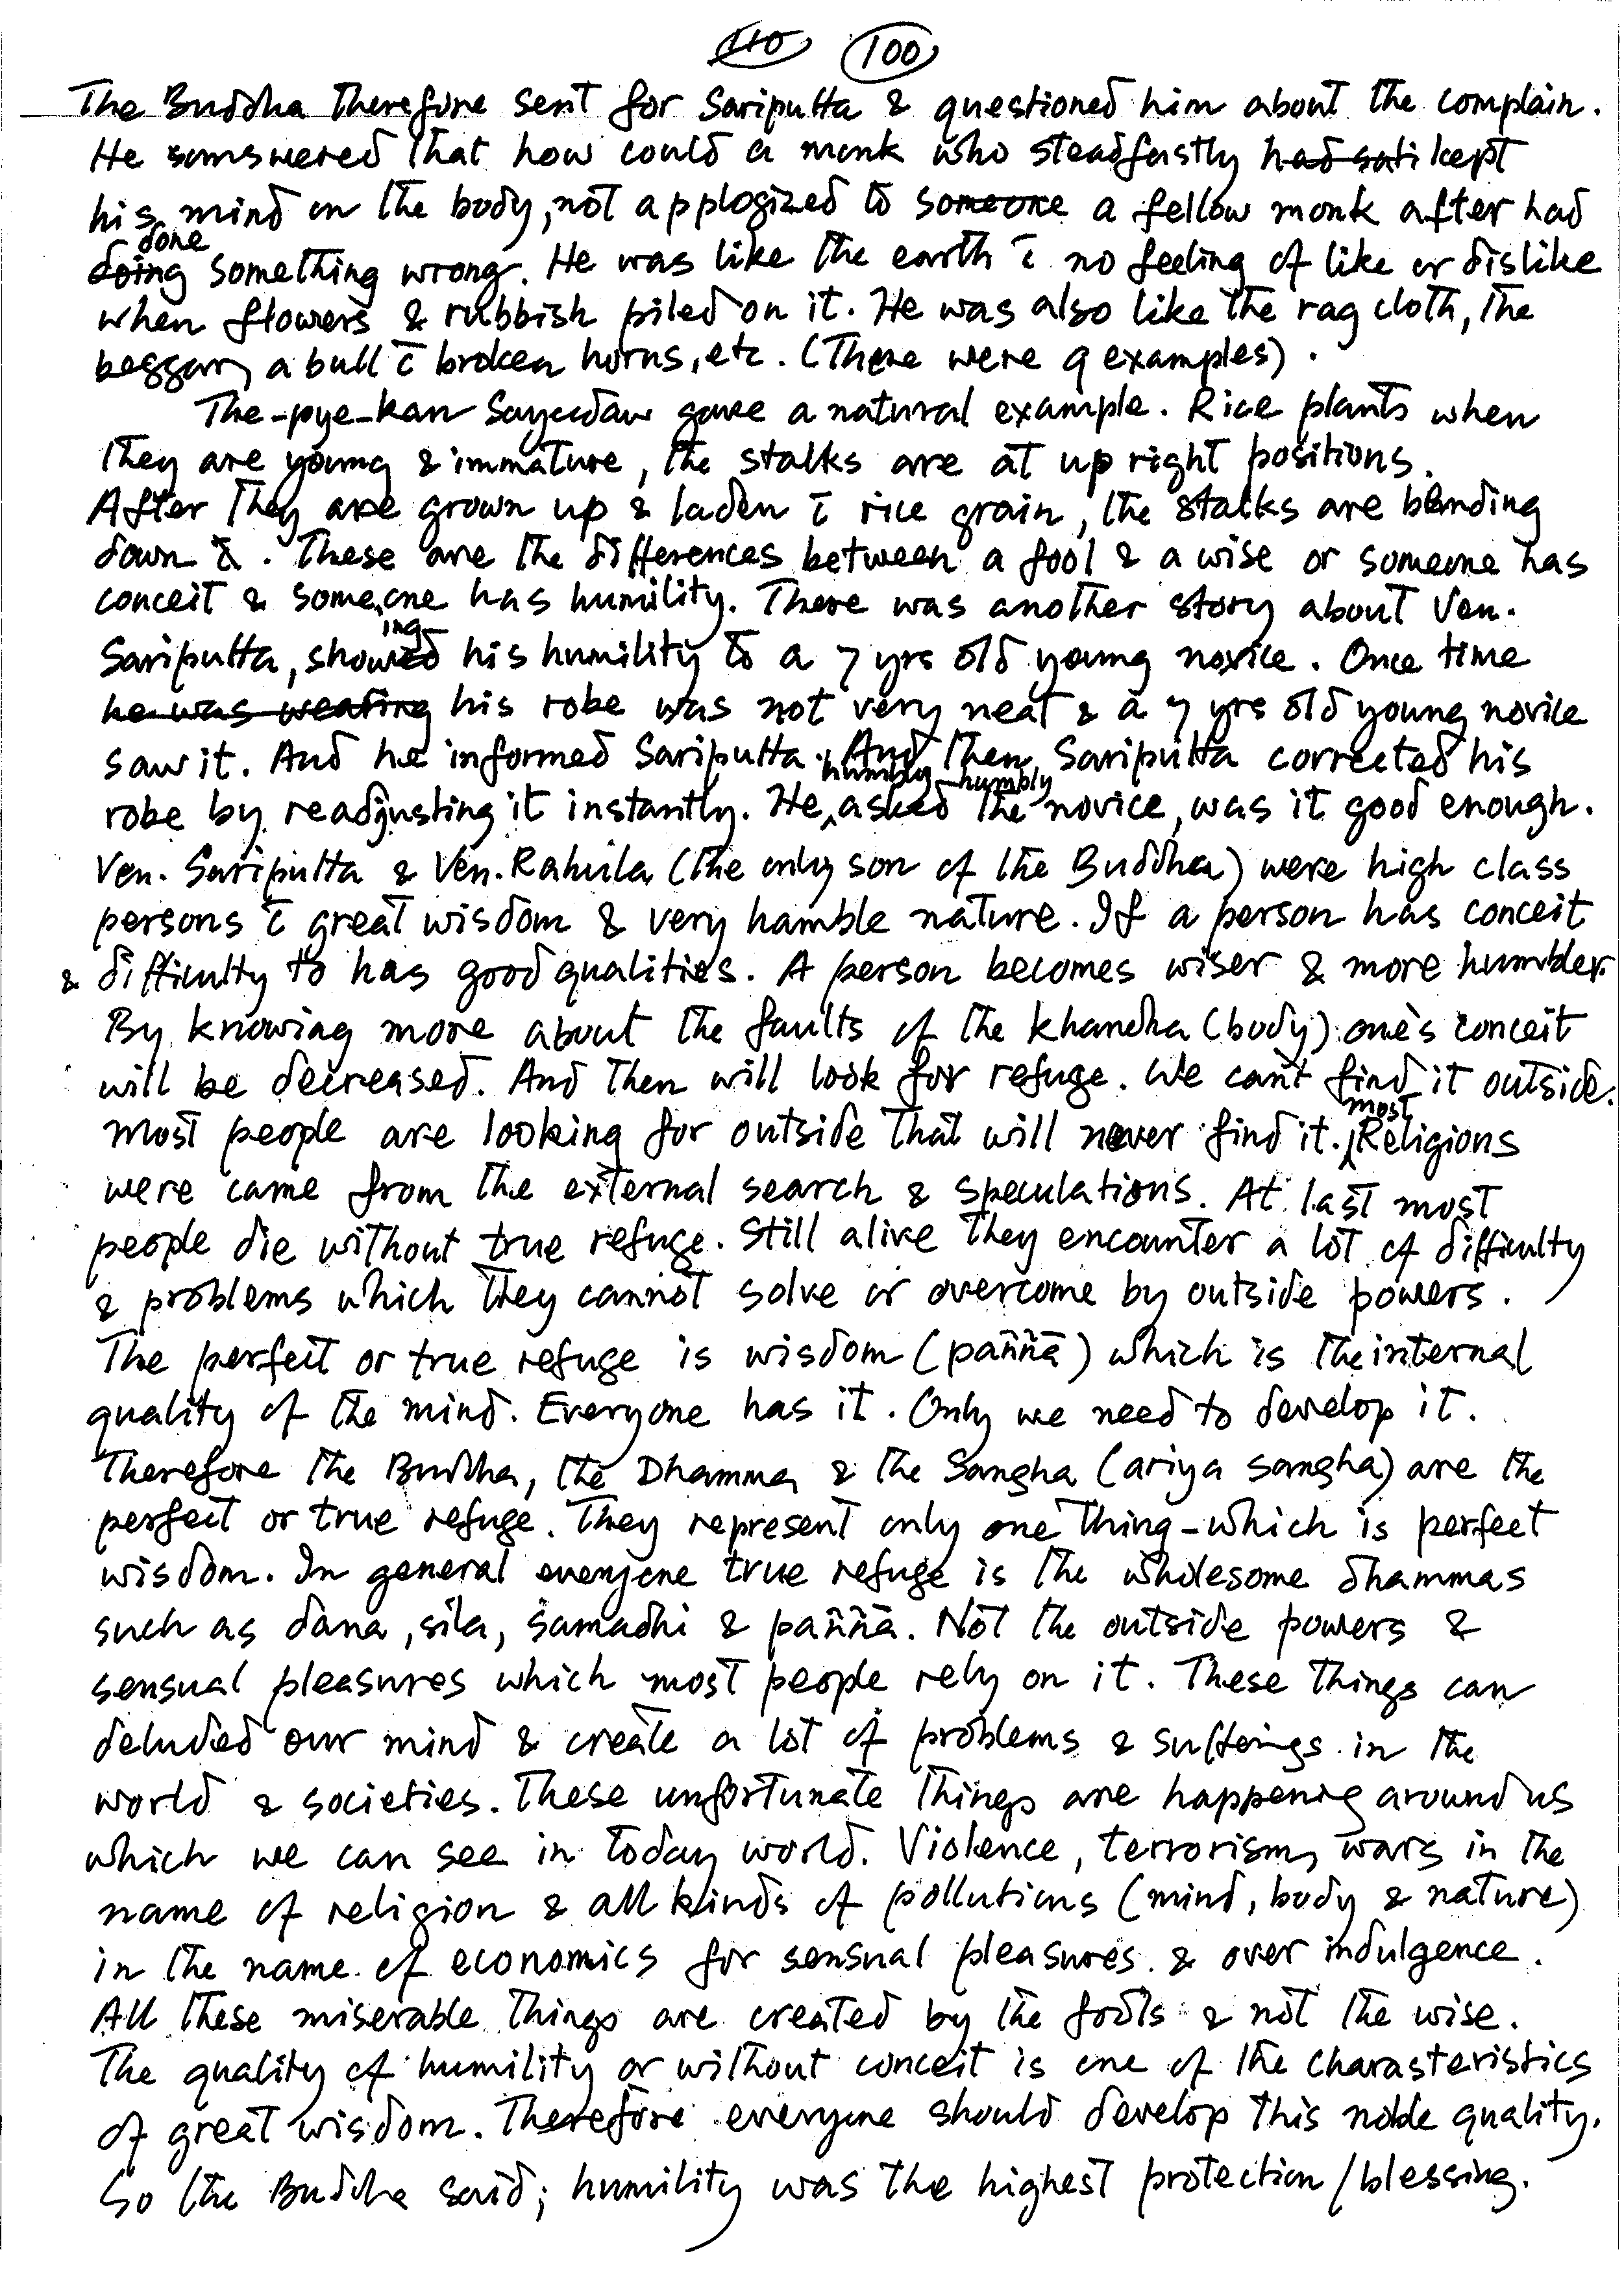 110 (100)
The Buddha therefore sent for Sariputta & questioned him about the complain.
He answered that how could a monk who steadfastly had sati kept
his mind on the body, not applogized to someone a fellow monk after had
done
doing something wrong. He was like the earth c̄ no feeling of like or dislike
when flowers & rubbish piled on it. He was also like the rag cloth, the
beggar, a bull c̄ broken horns, etc. (There were 9 examples).
The-pye-kan Sayadaw gave a natural example. Rice plants when
they are young & immature, the stalks are at up right positions.
After they are grown up & laden c̄ rice grain, the stalks are bending
down. These are the differences between a fool & a wise or someone has
conceit & someone has humility. There was another story about Ven.
ing
Sariputta, showed his humility to a 7 yrs old young novice. Once time
he was wearing his robe was not very neat & a 7 yrs old young novice
saw it. And he informed Sariputta. And then Sariputta corrected his
humbly humbly
robe by readjusting it instantly. He asked the novice, was it good enough.
Ven. Sariputta & Ven. Rahula (the only son of the Buddha) were high class
persons c̄ great wisdom & very hamble nature. If a person has conceit
& difficulty to has good qualities. A person becomes wiser & more humbler.
By knowing more about the faults of the khandha (body) one's conceit
will be decreased. And then will look for refuge. We can't find it outside.
most
most people are looking for outside that will never find it. Religions
were came from the external search & speculations. At last most
people die without true refuge. Still alive they encounter a lot of difficulty
& problems which they cannot solve or overcome by outside powers.
The perfect or true refuge is wisdom (paññā) which is the internal
quality of the mind. Everyone has it. Only we need to develop it.
Therefore the Buddha, the Dhamma & the Sangha (ariya sangha) are the
perfect or true refuge. They represent only one thing - which is perfect
wisdom. In general everyone true refuge is the wholesome dhammas
such as dana, sila, samadhi & paññā. Not the outside powers &
sensual pleasures which most people rely on it. These things can
deluded our mind & create a lot of problems & sufferings in the
world & societies. These unfortunate things are happenig around us
which we can see in today world. Violence, terrorism, wars in the
name of religion & all kinds of pollutions (mind, body & nature)
in the name of economics for sensual pleasures & over indulgence.
All these miserable things are created by the fools & not the wise.
The quality of humility or without conceit is one of the charasteristics
of great wisdom. Therefore everyone should develop this noble quality.
So the Buddha said; humility was the highest protection / blessing.